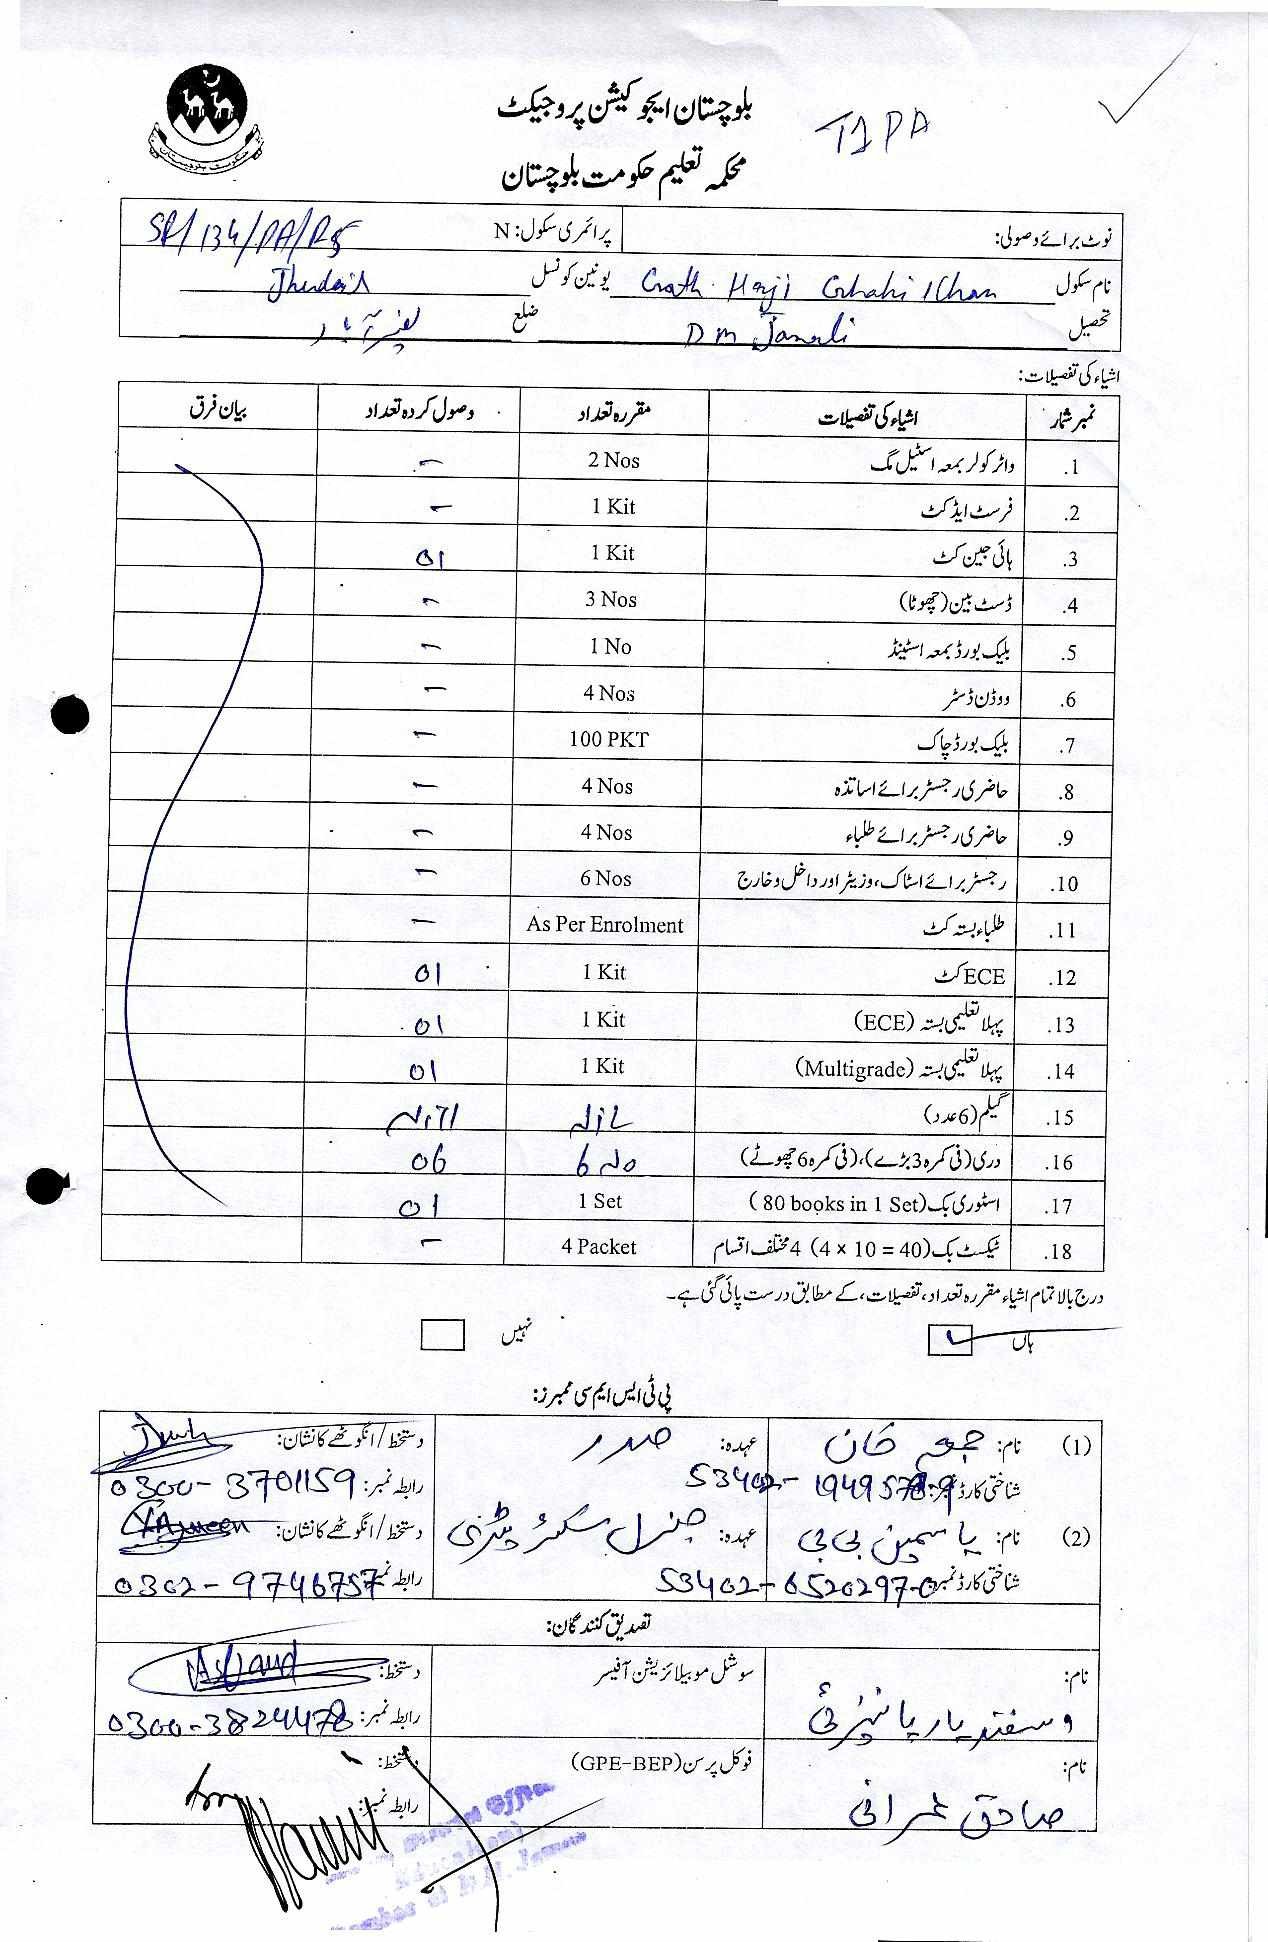 بلوچستان ایجوکیشن پروجیکٹ
محکمہ تعلیم حکومت بلوچستان
نوٹ برائے وصولی: پرائمری سکول: N
نام سکول Goth Haji Gahahi Khan یونین کونسل Jhudair
تحصیل D M Jamali ضلع نصیرآباد
اشیاء کی تفصیلات:
نمبر شمار اشیاء کی تفصیلات مقررہ تعداد وصول کردہ تعداد بیان فرق
1. واٹر کولر بمعہ اسٹیل مگ 2 Nos -
2. فرسٹ ایڈ کٹ 1 Kit -
3. ہائی جین کٹ 1 Kit 01
4. ڈسٹ بین (چھوٹا) 3 Nos -
5. بلیک بورڈ بمعہ اسٹینڈ 1 No -
6. ووڈن ڈسٹر 4 Nos -
7. بلیک بورڈ چاک 100 PKT -
8. حاضری رجسٹر برائے اساتذہ 4 Nos -
9. حاضری رجسٹر برائے طلباء 4 Nos -
10. رجسٹر برائے اسٹاک، وزیٹر اور داخل و خارج 6 Nos -
11. طلباء بستہ کٹ As Per Enrolment -
12. ECE کٹ 1 Kit 01
13. پہلا تعلیمی بستہ (ECE) 1 Kit 01
14. پہلا تعلیمی بستہ (Multigrade) 1 Kit 01
15. گیلم (6 عدد)
16. دری (فی کمرہ 3 بڑے)، (فی کمرہ 6 چھوٹے) 6 No 06
17. اسٹوری بک (80 books in 1 Set) 1 Set 01
18. ٹیکسٹ بک (4 × 10 = 40) 4 مختلف اقسام 4 Packet -
درج بالا تمام اشیاء مقررہ تعداد، تفصیلات، کے مطابق درست پائی گئی ہے۔
ہاں نہیں
پی ٹی ایس ایم سی ممبرز:
(1) نام: جمعہ خان عہدہ: صدر دستخط/انگوٹھے کا نشان:
شناختی کارڈ نمبر: رابطہ نمبر: 0300-3701159
(2) نام: یاسمین بی بی عہدہ: جنرل سیکرٹری دستخط/انگوٹھے کا نشان: Yasmeen
شناختی کارڈ نمبر: 53402-6520297-0 رابطہ نمبر: 0302-9746757
تصدیق کنندگان:
نام: سوشل موبیلائزیشن آفیسر دستخط:
رابطہ نمبر: 0300-3824478
نام: صادق عمرانی فوکل پرسن (GPE-BEP) دستخط:
رابطہ نمبر: